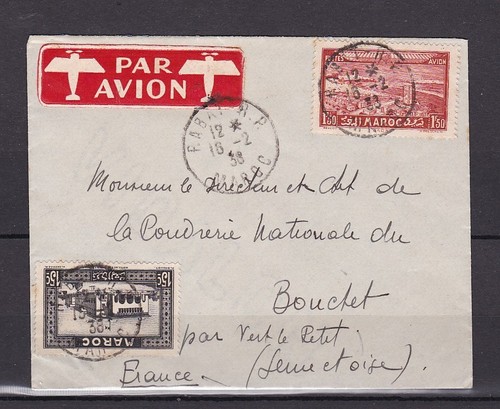 PAR
AVION
POSTES AVION
1F50 MAROC 1F50
RABAT R.P.
12 *
16 -2
38
MAROC
Monsieur le Directeur et Art de
la Poudrerie Nationale du
Bouchet
par Vert le Petit
(Seine et oise)
France
15c 15c
MAROC